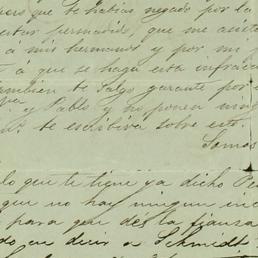 que te habias negado por la
que me asista
á mis hermanos y por mi
á que se haga esta infracci
tambien te salgo garante por e
y Pablo y se ponen
te escribira sobre esto.
Somos
lo que te tiene ya dicho Pe
que no hay ningun inc
para que des la fianza
do en decir a Schmidt